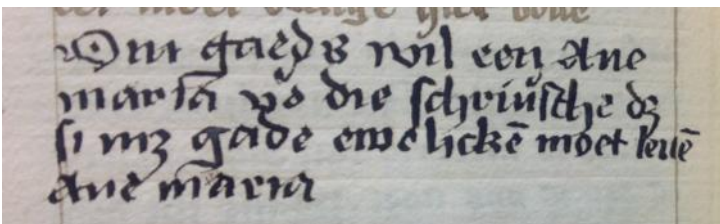 Om gaeds wil een Aue
maria vo̅ die schriuſche dʒ
ſi mʒ gade ewelicke̅ moet leue̅
Aue maria